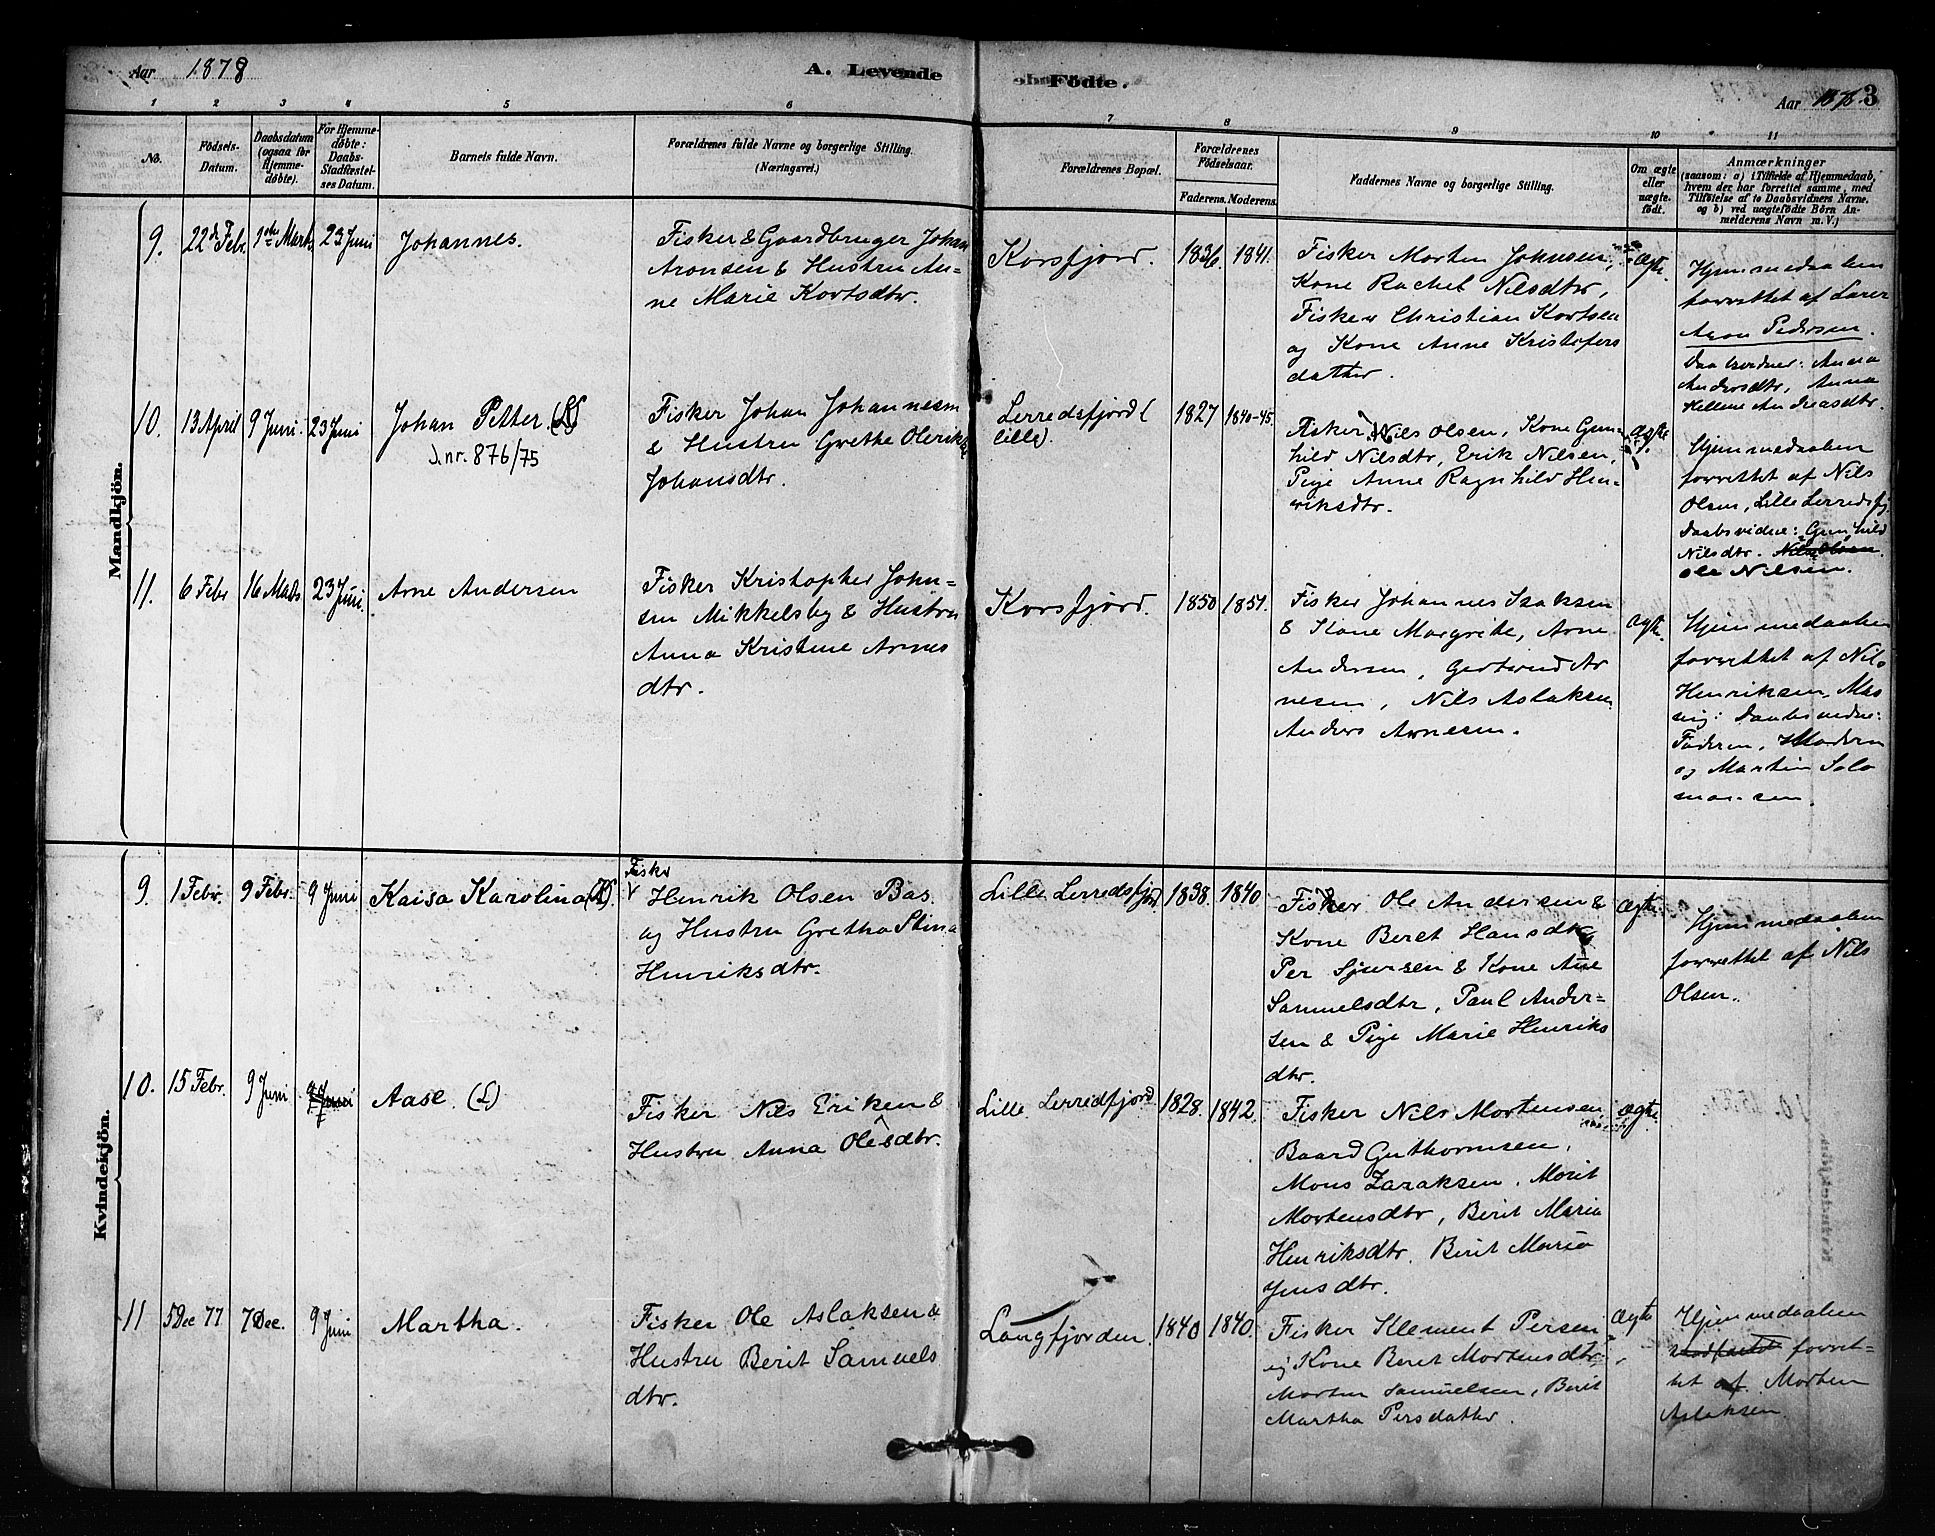 Aar 1878
A. Levende
Födte.
Aar 1878. 3
1 2 3 4 5 6 7 8 9 10 11
No.
Födsels-
Datum.
Daabsdatum
(ogsaa for
Hjemme-
døbte).
For Hjemme-
døbte:
Daabs-
Stadfæstel-
ses Datum.
Barnets fulde Navn.
Forældrenes fulde Navne og borgerlige Stilling.
(Næringsvei.)
Forældrenes Bopæl.
Forældrenes
Födselsaar.
Faderens. Moderens.
Faddernes Navne og borgerlige Stilling.
Om ægte
eller
uægte
født.
Anmærkninger
(saasom: a) i Tilfælde af Hjemmedaab,
hvem der har forrettet samme, med
Tilföielse af to Daabsvidners Navne.
og b) ved uægtefödte Börn An-
melderens Navn m. V.)
Mandkjön.
9. 22d Febr. 1ste Marts 23 Juni
Johannes.
Fisker & Gaardbruger Johan
Aronsen & Hustru An-
ne Marie Kortsdtr.
Korsfjord.
1836. 1841.
Fisker Morten Johnsen,
Kone Rachel Nilsdtr,
Fisker Christian Kortsen
og Kone Anne Kristofers
datter.
Ægte.
Hjemmedaaben
forrettet af Lærer
Aron Pedersen.
Daabsvidner: Anna
Andersdtr, Anna
Hellene Andreasdtr.
10. 13 April 9 Juni. 23 Juni
Johan Petter (K)
J.nr. 876/75
Fisker Johan Johannesen
& Hustru Grethe Olerikke
Johansdtr.
Lerredsfjord (
lille).
1827 1840-45.
Fisker Nils Olsen, Kone Gun-
hild Nilsdtr, Erik Nilsen,
Pige Anne Ragnhild Hen-
riksdtr.
ægte
Hjemmedaaben
forrettet af Nils
Olsen, Lille Lerredsfj.
Daabsvidne: Gunhild
Nilsdtr. Nils Olsen
Ole Nilsen.
11. 6 Febr 16 Marts 23 Juni.
Arne Andersen
Fisker Kristopher John-
sen Mikkelsby & Hustru
Anna Kristine Arnes
dtr.
Korsfjord.
1850 1851.
Fisker Johannes Isaksen
& Kone Margrete, Arne
Andersen, Gertrud Ar
nesen, Nils Aslaksen
Anders Arnesen.
ægte.
Hjemmedaaben
forrettet af Nils
Henriksen, Mas
sig: Daabsvidne:
Faderen, Moderen
og Martin Salo
monsen.
Kvindekjön.
9. 1 Febr. 9 Febr. 9 Juni
Kaisa Karolina (K).
Fisker
Henrik Olsen Bas.
og Hustru Gretha Stina
Henriksdtr.
Lille Lerredsfjord.
1838. 1840.
Fisker Ole Andersen &
Kone Beret Hansdtr,
Per Sjursen & Kone Ane
Samuelsdtr, Paul Ander-
sen & Pige Marie Henriks
dtr.
Ægte
Hjemmedaaben
forrettet af Nils
Olsen.
10. 15 Febr. 9 Juni 9 Juni
Aase. (L)
Fisker Nils Eriken &
Hustru Anna Olesdtr.
Lille Lerredfjord
1828. 1842.
Fisker Nils Mortensen,
Baard Guthormsen,
Mons Zaraksen. Morit
Mortensdtr, Berit Maria
Henriksdtr. Berit Maria
Jensdtr.
Ægte
11 5 Dec 77 7 Dec. 9 Juni
Martha.
Fisker Ole Aslaksen &
Hustru Berit Samuels
dtr.
Langfjorden
1840 1840.
Fisker Klement Persen
og Kone Beret Mortensdtr,
Morten Samuelsen, Berit
Martha Persdatter.
Ægte
Hjemmedaaben
forret-
tet af Morten
Aslaksen.